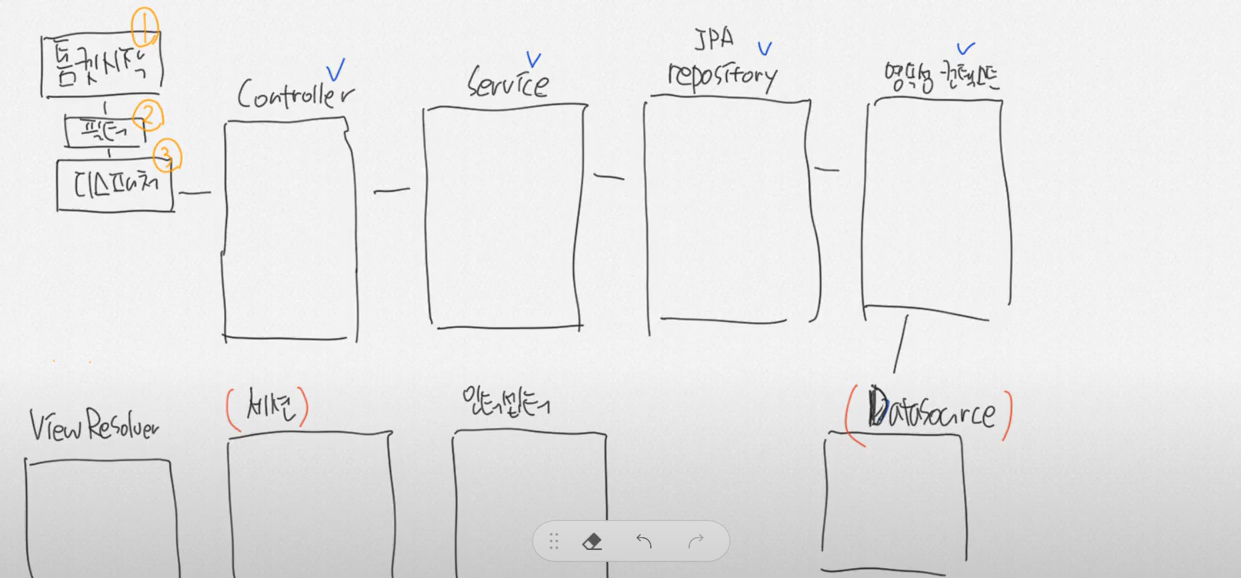 ①
톰캣시작
②
필터
③
디스패쳐
Controller
Service
JPA
repository
영속성 컨텍스트
ViewResolver
(세션)
인터셉터
(Datasource)